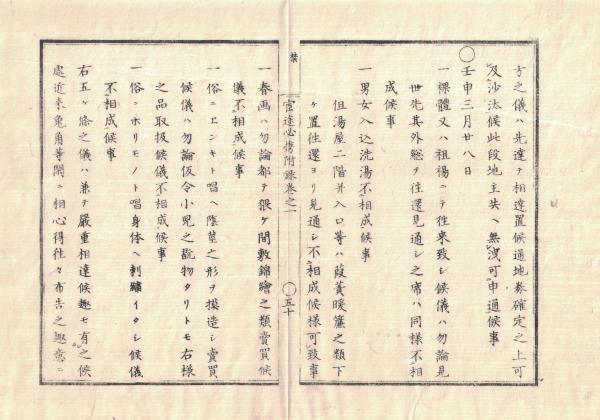 方之儀ハ先達テ相達置候通地券確定之上可
及沙汰候此段地主共ヘ無洩可申通候事
〇壬申三月廿八日
一裸體又ハ袒裼ニテ往来致シ候儀ハ勿論見
世先其外総テ往還見通シ之席ハ同様不相
成候事
一男女入込洗湯不相成候事
但湯屋二階并入口等ハ葭簀暖簾之類下
ケ置往還ヨリ見通シ不相成候様可致事
禁
官達必携附録巻之一
〇五十
一春画ハ勿論都テ猥ケ間敷錦繪之類賣買候
儀不相成候事
一俗ニエンキト唱ヘ陰莖之形ヲ摸造シ賣買
候儀ハ勿論仮令小児之翫物タリトモ右様
之品取扱候儀不相成候事
一俗ニホリモノト唱身体ヘ刺繍イタシ候儀
不相成候事
右五ケ條之儀ハ兼テ嚴重相達候趣モ有之候
處近来兎角等閑ニ相心得往々布告之趣意ニ